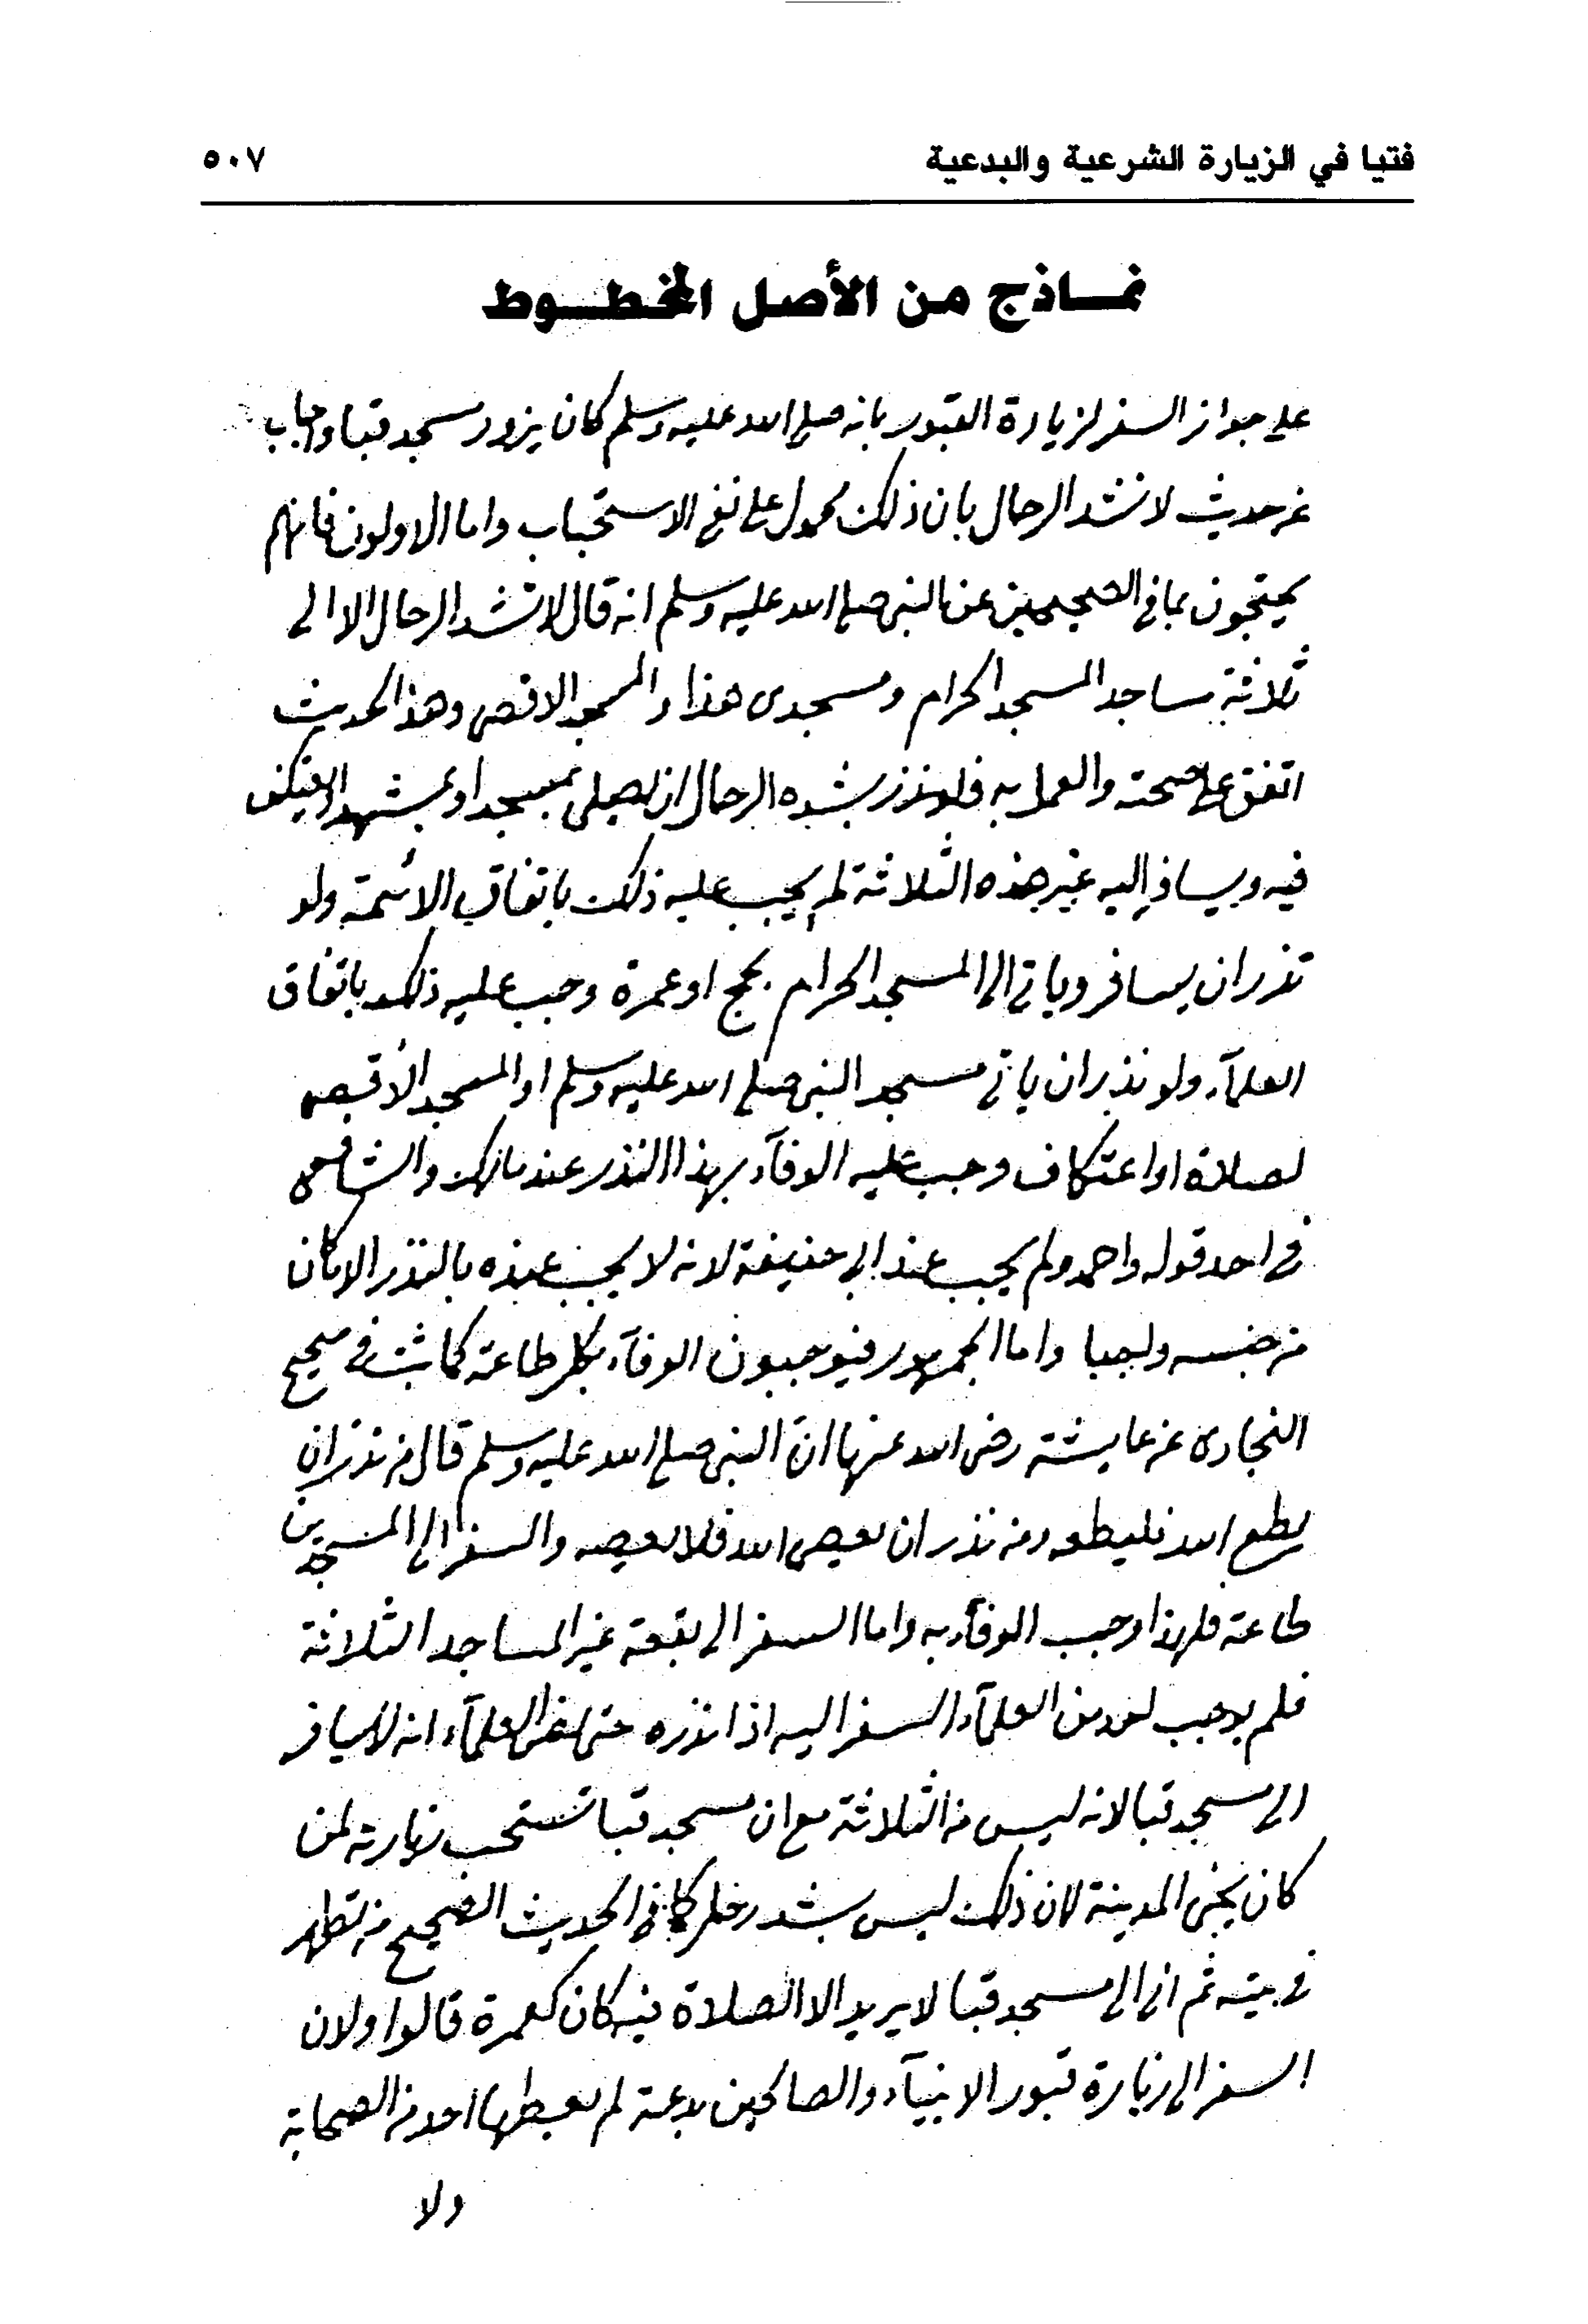 فتيا في الزيارة الشرعية والبدعية ٥٠٧
نماذج من الأصل المخطوط
على جواز السفر لزيارة القبور بانه صلى الله عليه وسلم كان يزور مسجد قبا واجاب
عن حديث لا تشد الرحال بان ذلك محمول على نفي الاستحباب واما الاولون فانهم
يحتجون بما في الصحيحين عن النبي صلى الله عليه وسلم انه قال لا تشد الرحال الا الى
ثلاثة مساجد المسجد الحرام ومسجدى هذا والمسجد الاقصى وهذا الحديث
اتفق على صحته والعمل به فلو نذر بشده الرحال ان يصلى بمسجد او بمشهد او يعتكف
فيه ويسافر إليه غير هذه الثلاثة لم يجب عليه ذلك باتفاق الائمة ولو
نذر ان يسافر وياتي الى المسجد الحرام بحج او عمرة وجب عليه ذلك باتفاق
العلمآء ولو نذر ان ياتي مسجد النبي صلى الله عليه وسلم او المسجد الأقصى
لصلاة او اعتكاف وجب عليه الوفآء بهذا النذر عند مالك والشافعى
في احد قوله واحمد ولم يجب عند ابي حنيفة لانه لا يجب عنده بالنذر الا ما كان
من جنسه واجبا واما الجمهور فيوجبون الوفآء بكل طاعة كما ثبت في صحيح
البخارى عن عايشة رضى الله عنها ان النبي صلى الله عليه وسلم قال من نذر ان
يطع الله فليطعه ومن نذر ان يعصى الله فلا يعصه والسفر الى المسجدين
طاعة فلهذا وجب الوفآء به واما السفر الى بقعة غير المساجد الثلاثة
فلم يوجب احد من العلمآء السفر اليه اذا نذره حتى نص العلمآء انه لا يسافر
الى مسجد قبا لانه ليس من الثلاثة مع ان مسجد قبا تستحب زيارته لمن
كان يجئ المدينة لان ذلك ليس بشد رحل كما في الحديث الصحيح من تطهر
في بيته ثم اتى الى مسجد قبا لا يريد الا الصلاة فيه كان كعمرة قالوا ولان
السفر الى زيارة قبور الانبيآء والصالحين بدعة لم يفعلها احد من الصحابة
ولا